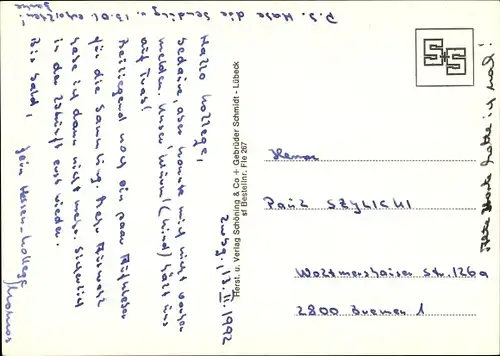 P.S. Habe die Sendung v. 13.01. erhalten!
Danke
Zwbg., 13.II.1992
Hallo Kollege,
bedaure, aber konnte mich nicht vorher
melden. Unser "Wurm" (Kind) hält uns
auf Trab!
Beiliegend noch ein paar Aufkleber
für die Sammlung. Mehr Auswahl
habe ich dann nicht mehr. Sicherlich
in der Zukunft erst wieder.
Bis bald,
Dein Hessen-Kollege
Herst. u. Verlag Schöning & Co + Gebrüder Schmidt - Lübeck
sf Bestellnr. Fle 267
S+S
Herrn
Paul SZYLICHI
Woltmershauser Str. 126a
2800 Bremen 1
Alte Karte hatte ich mal!